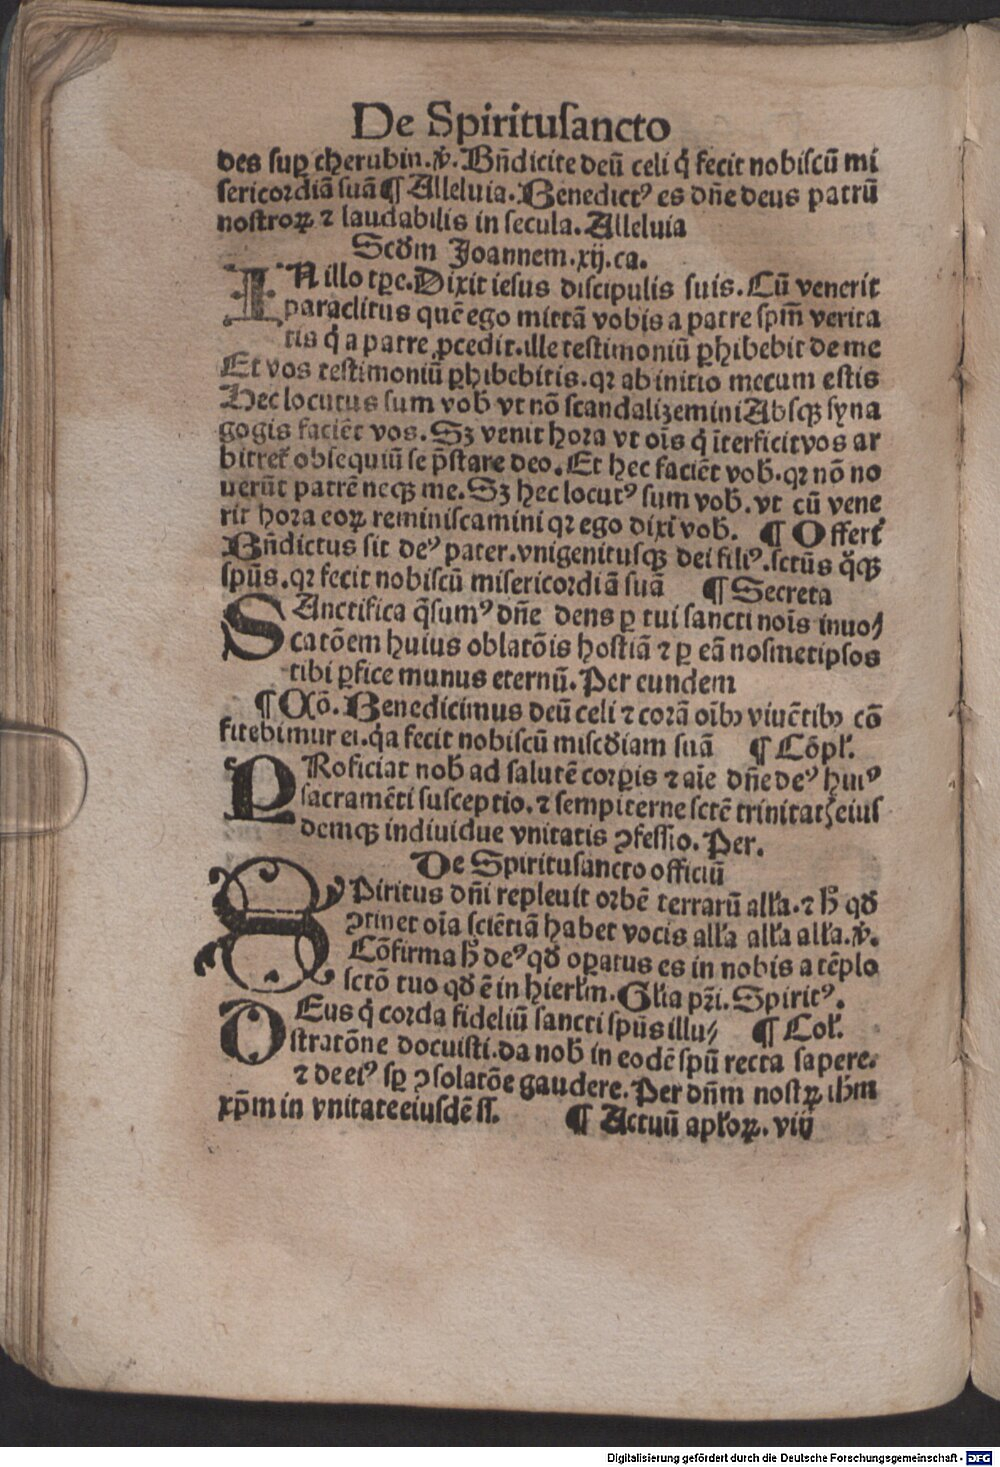 De Spirituſancto
des ſuꝑ cherubin.ꝟ. Bn̄dicite deū celi q̇ fecit nobiſcū mi
ſericordiā ſuā¶ Alleluia. Benedictꝰ es dn̄e deus patrū
noſtroꝝ ⁊ laudabilis in ſecula. Alleluia
Scd̓m Joannem.xij.ca.
IN illo tꝑe. Dixit ieſus diſcipulis ſuis. Cū venerit
paraclitus quē ego mittā vobis a patre ſpm̄ verita
tis q̇ a patre ꝓcedit.ille teſtimoniū ꝑhibebit de me
Et vos teſtimoniū ꝑhibebitis.qꝛ ab initio mecum eſtis
Hec locutus ſum vob̓ vt nō ſcandalizemini Abſqꝫ ſyna
gogis faciēt vos. Sꝫ venit hora vt oīs q̇ īterficit vos ar
bitret̉ obſequiū ſe p̄ſtare deo. Et hec faciēt vob̓.qꝛ nō no
uerūt patrē neqꝫ me. Sꝫ hec locutꝰ ſum vob̓.vt cū vene
rit hora eoꝝ reminiſcamini qꝛ ego dixi vob̓. ¶ Offert̓
Bn̄dictus ſit deꝰ pater.vnigenituſqꝫ dei filiꝰ.ſctūs q̊qꝫ
ſpūs.qꝛ fecit nobiſcū miſericordiā ſuā ¶ Secreta
SAnctifica q̄ſumꝰ dn̄e dens ꝑ tui ſancti noīs inuo⸗
catōem huius oblatōis hoſtiā ⁊ ꝑ eā noſmetipſos
tibi ꝑfice munus eternū. Per eundem
¶ Cōō. Benedicimus deū celi ⁊ corā oībꝫ viuētibꝫ cō
fitebimur ei.q̇a fecit nobiſcū miſcd̓iam ſuā ¶ Cōpl̓.
PRoficiat nob̓ ad ſalutē corꝑis ⁊ aīe dn̄e deꝰ huiꝰ
ſacramēti ſuſceptio.⁊ ſempiterne ſctē trinitatꝭ eiuſ
demqꝫ indiuidue vnitatis ꝯfeſſio. Per.
De Spirituſancto officiū
SPiritus dn̄i repleuit orbē terrarū all̓a.⁊ h̓ qd̓
ꝯtinet oīa ſciētiā habet vocis all̓a all̓a all̓a.ꝟ.
Cōfirma h̓ deꝰ qd̓ oꝑatus es in nobis a tēplo
ſctō tuo qd̓ ē in hierl̓m. Gl̓ia pr̄i. Spiritꝰ.
DEus q̇ corda fideliū ſancti ſpūs illu⸗ ¶ Col̓.
ſtratōne docuiſti.da nob̓ in eodē ſpū recta ſapere.
⁊ de eiꝰ ſꝑ ꝯſolatōe gaudere. Per dn̄m noſtꝝ ih̓m
xp̄m in vnitate eiuſdē ſſ. ¶ Actuū apl̓oꝝ. viij
Digitalisierung gefördert durch die Deutsche Forschungsgemeinschaft - DFG